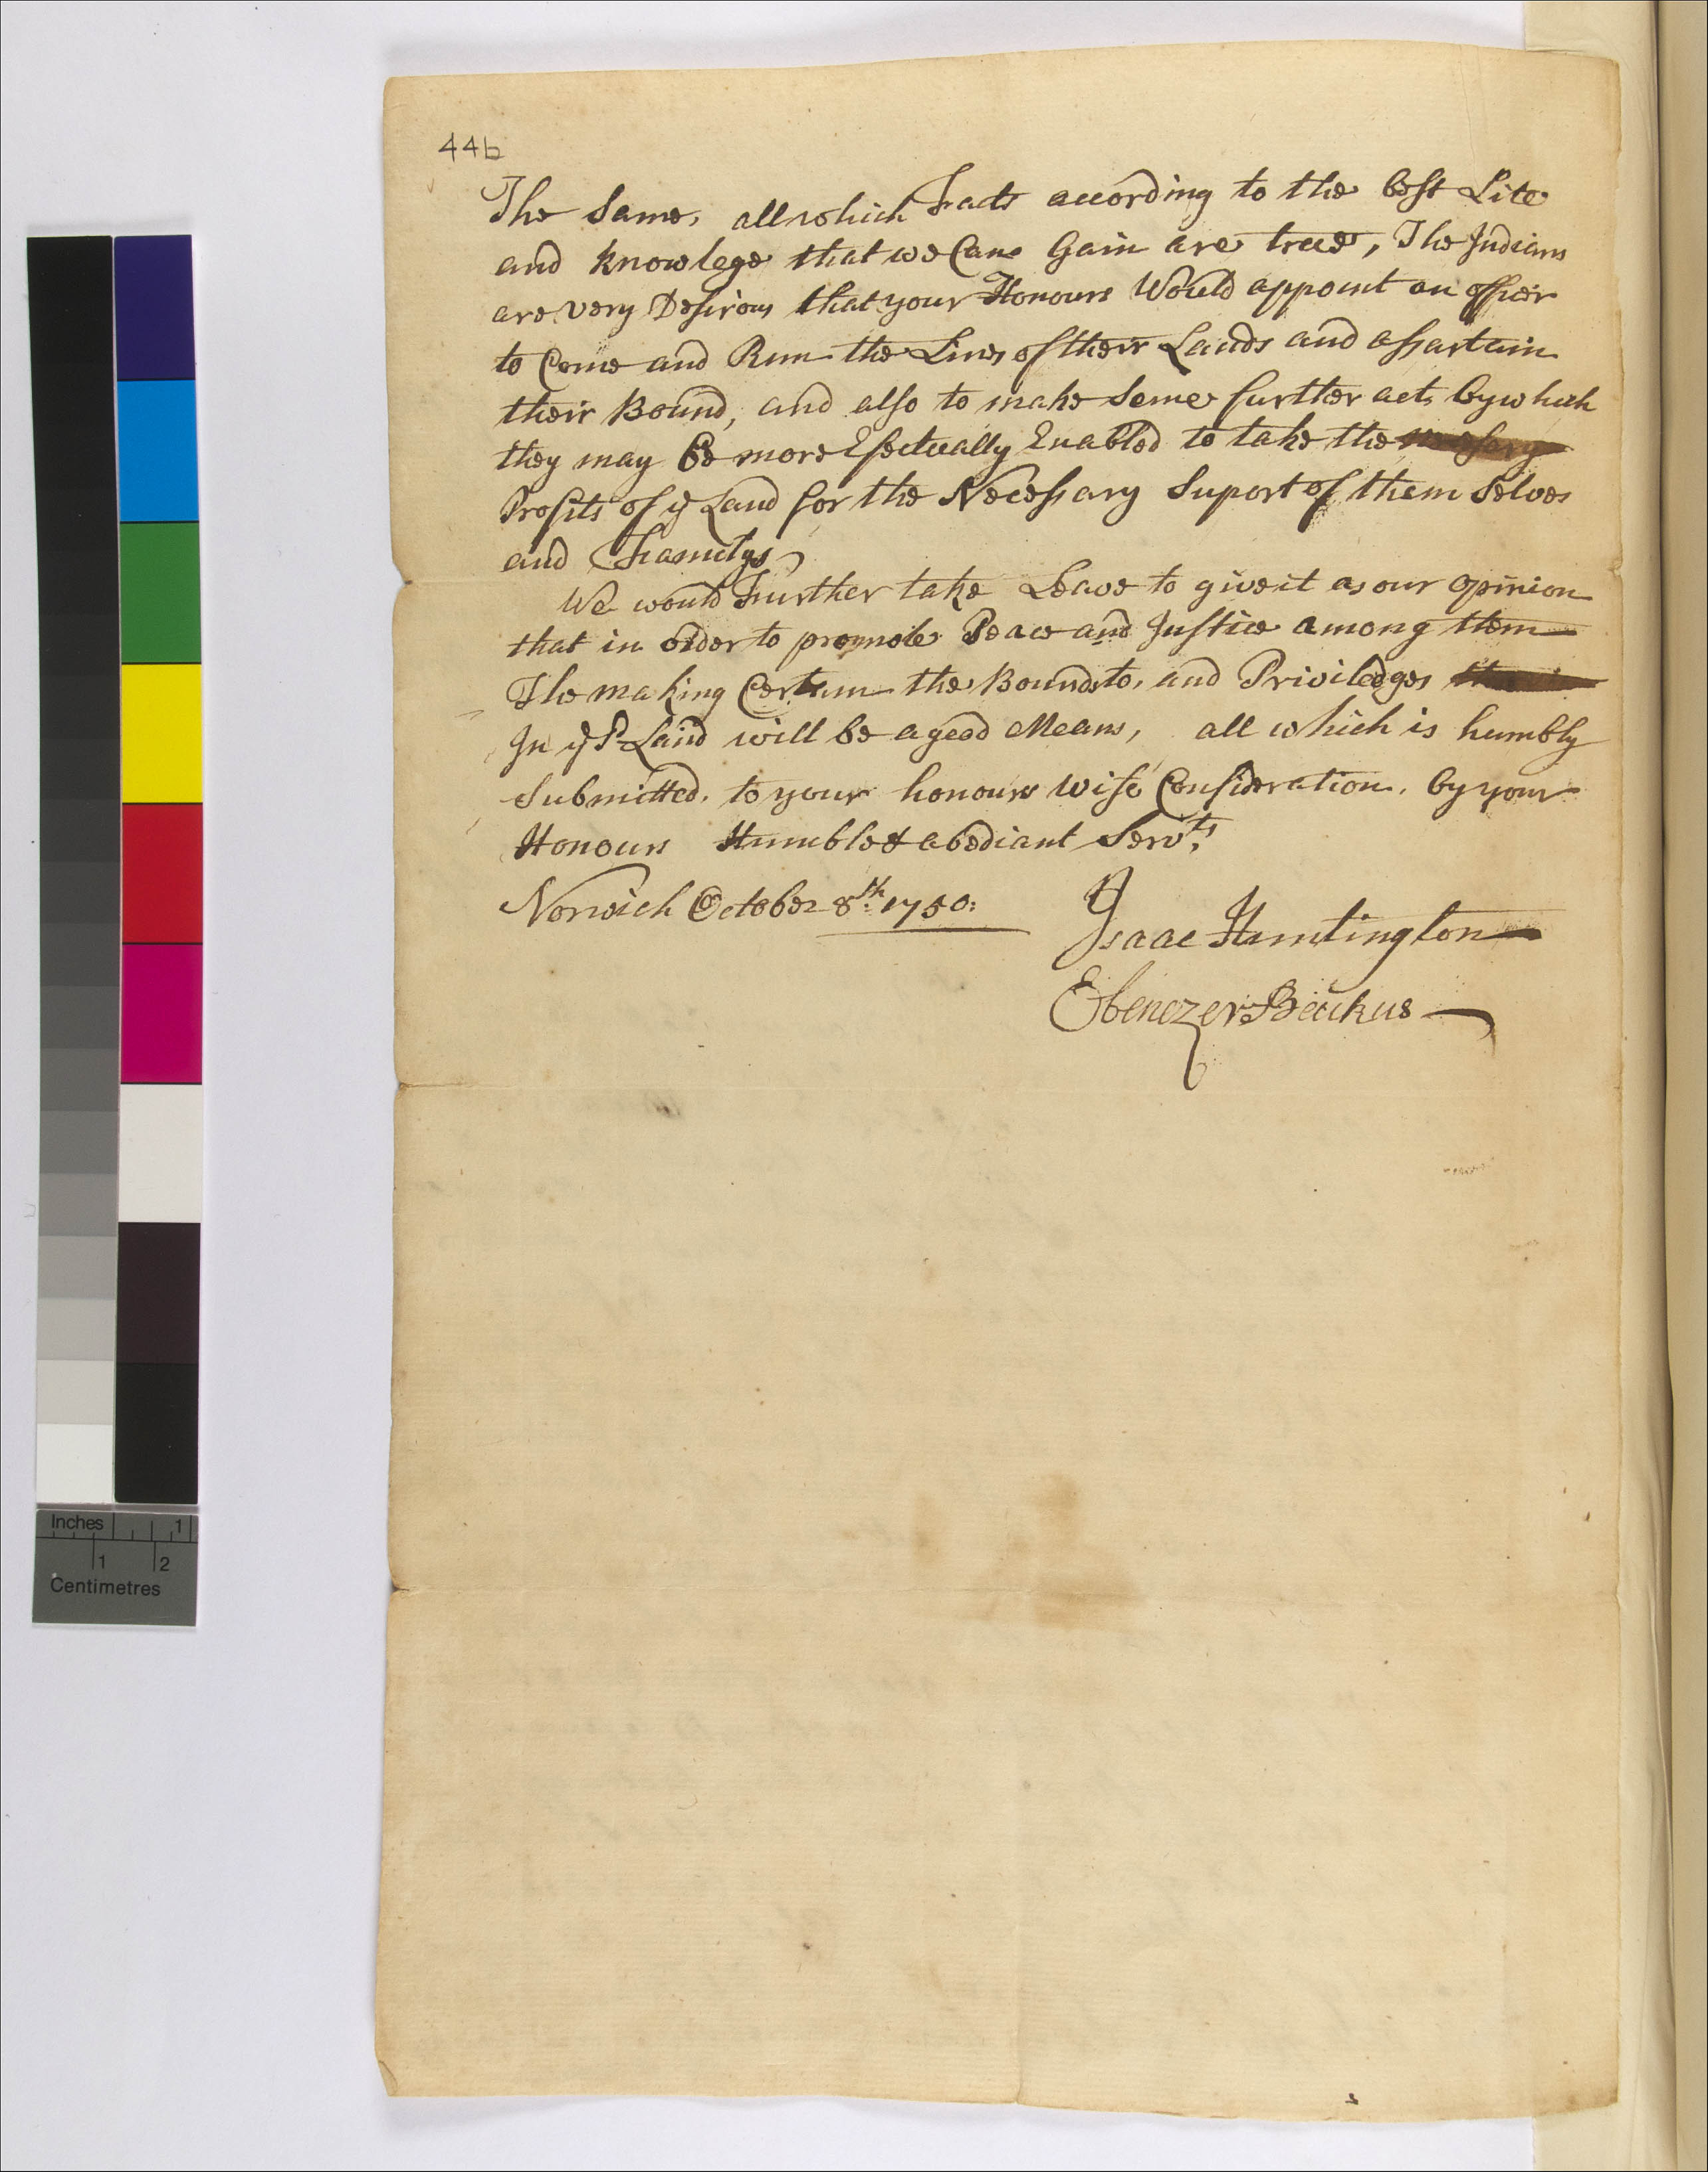 44b
The Same, all which Facts according to the best Lite
and knowlege that we Can Gain are true, The Indians
are very Desirous that your Honours Would appoint an officer
to Come and Run the Lines of their Lands and assartain
their Bound, and also to make Some further act, by which
they may be more Efectually Enabled to take the
Profits of ye Land for the Necessary Suport of them Selves
and Familys
We would Further take Leave to give it as our opinion
that in order to promote Peace and Justice among them
The making Certain the Bounds to, and Priviledges
In ye Sd Land will be a good Means, all which is humbly
Submitted, to your honours wise Consideration, by your
Honours Humble & abediant Servts
Norwich October 8th 1750:
Isaac Huntington
Ebenezer Backus
Inches 1
1 2
Centimetres